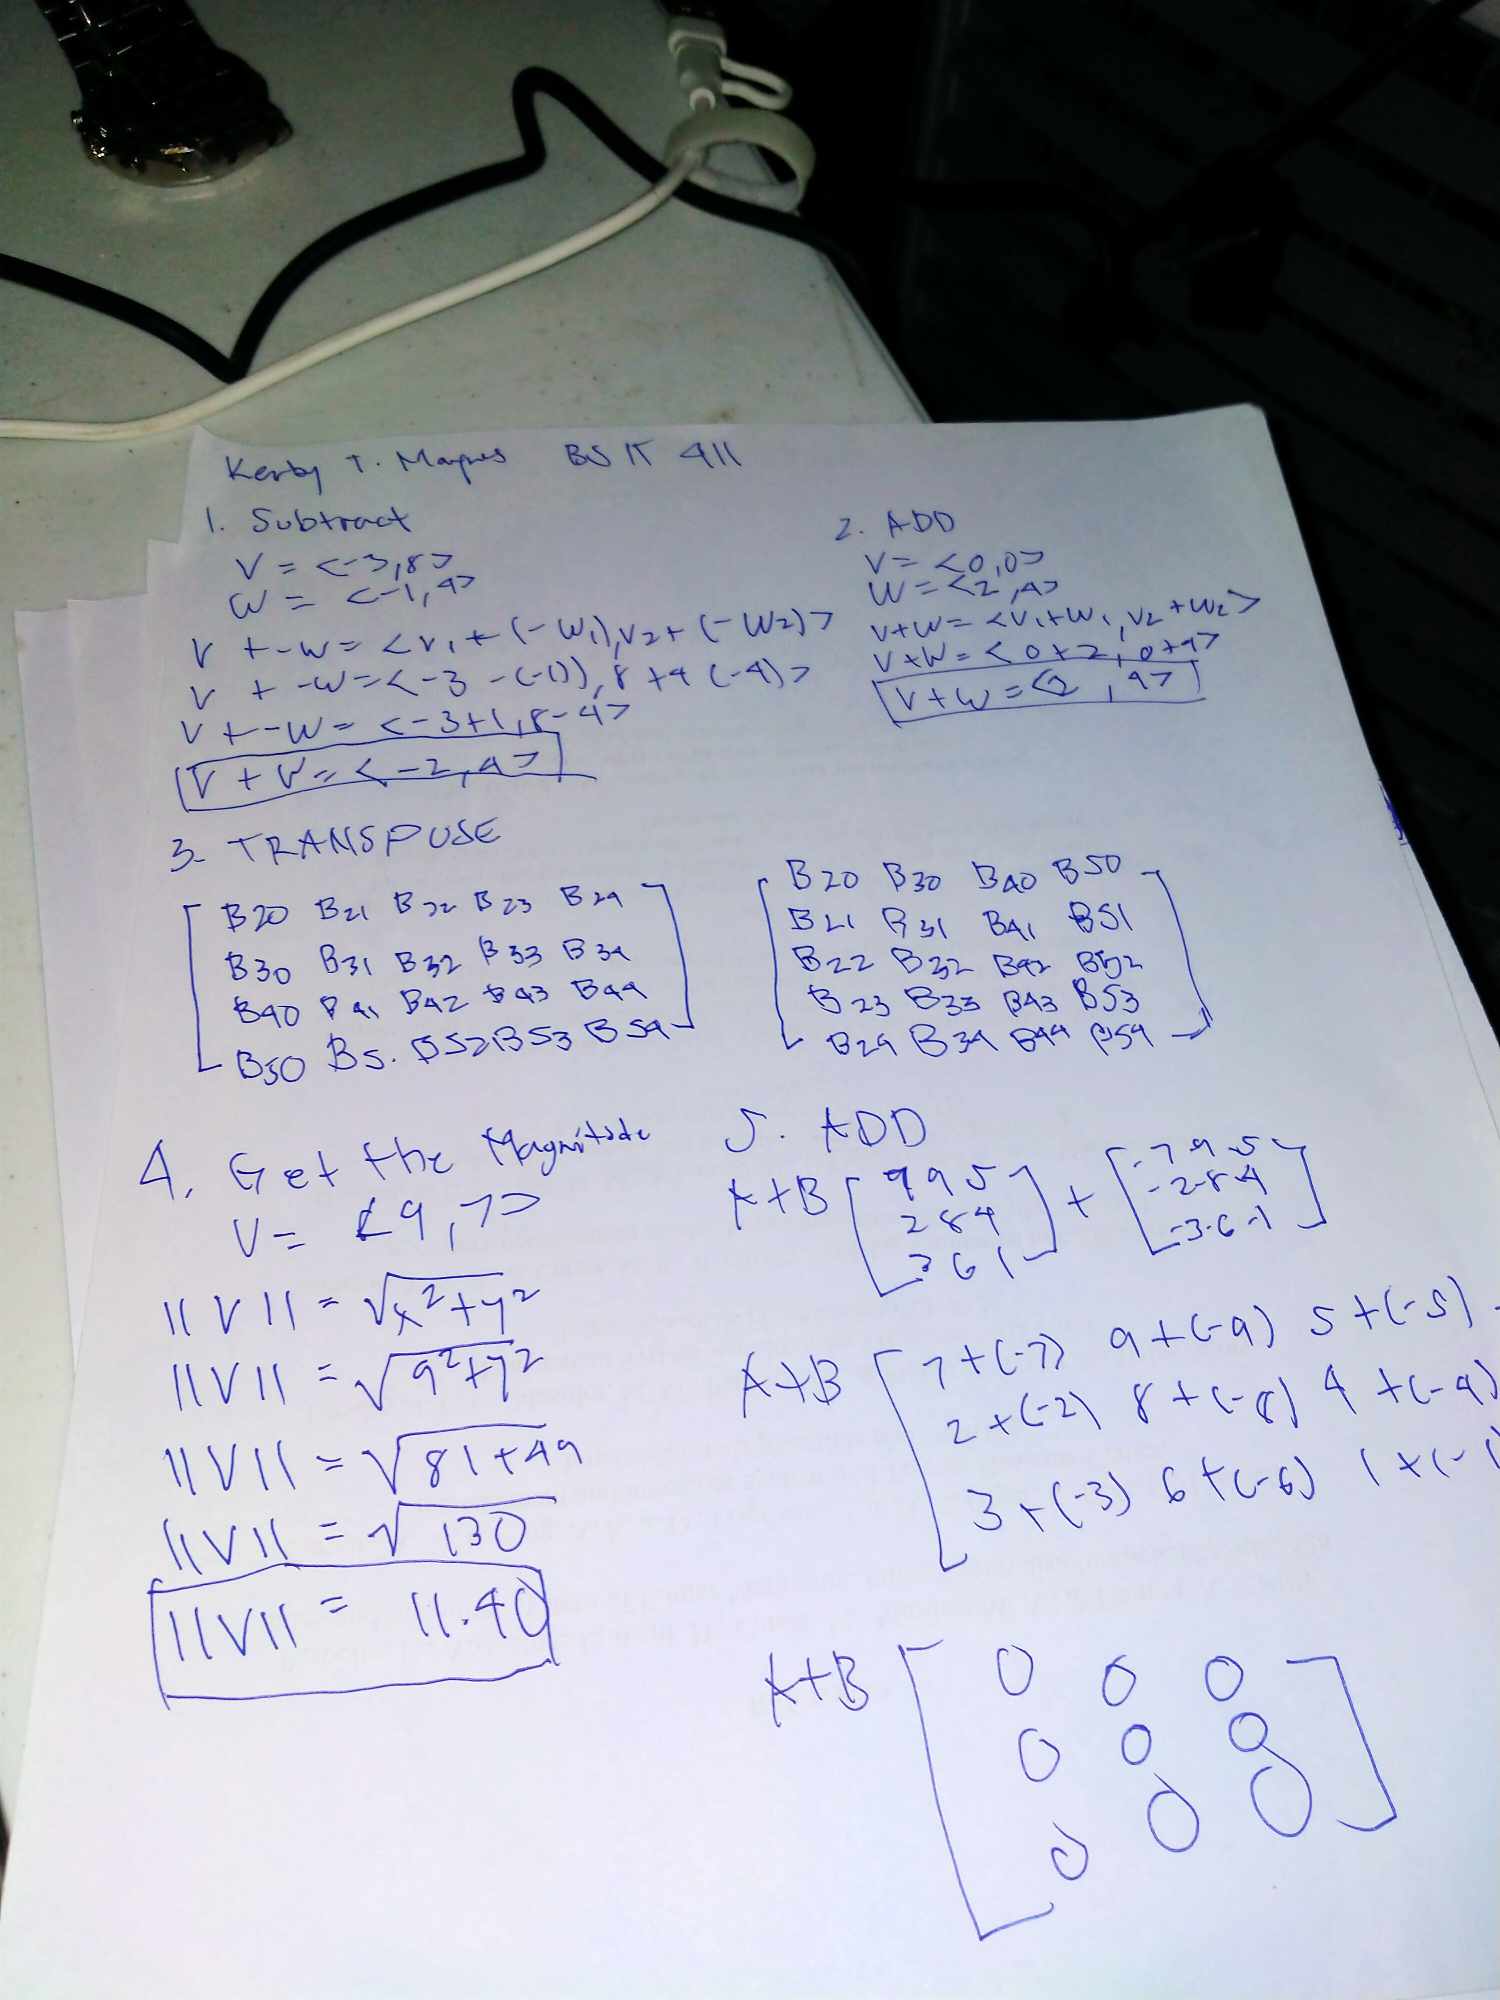 Kerby T. Mapes BS IT 411
1. Subtract
V = <-3,8>
W = <-1,4>
V + -W = <V1 + (-W1), V2 + (-W2)>
V + -W = <-3 - (-1)), 8 +4 (-4)>
V + -W = <-3+1, 8-4>
V + W = <-2, 4>
2. ADD
V = <0,0>
W = <2,4>
V+W = <V1+W1, V2+W2>
V+W = <0+2, 0+4>
V+W = <2, 4>
3. TRANSPOSE
B20 B21 B22 B23 B24
B30 B31 B32 B33 B34
B40 B41 B42 B43 B44
B50 B5. B52 B53 B54
B20 B30 B40 B50
B21 B31 B41 B51
B22 B32 B42 B52
B23 B33 B43 B53
B24 B34 B44 B54
4. Get the Magnitude
V = <9,7>
||V|| = √x²+y²
||V|| = √9²+7²
||V|| = √81+49
||V|| = √130
||V|| = 11.40
5. ADD
A+B [ 9 5 + [-7 9 5
2 8 4 -2-8-4
3 6 1 ] -3-6-1 ]
A+B [ 7+(-7) 9+(-9) 5+(-5)
2+(-2) 8+(-8) 4+(-4)
3+(-3) 6+(-6) 1+(-1
A+B [ 0 0 0
0 0 0
0 0 0 ]